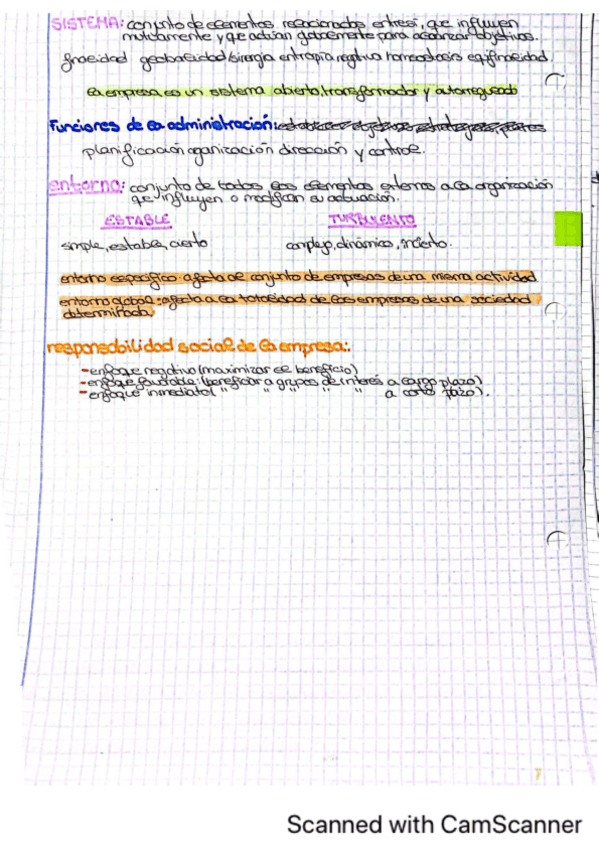 SISTEMA: conjunto de elementos relacionados entresi, que influyen
mutuamente y que actúan globalmente para alcanzar objetivos.
finacidad globalidad/sinergia entropía negativa homeostasis equifinacidad.
la empresa es un sistema abierto, transformador y autorregulado
Funciones de la administración:
planificación organización dirección y control.
entorno: conjunto de todos los elementos externos a la organización
que influyen o modifican su actuación.
ESTABLE TURBULENTO
simple, estable, cierto complejo, dinámico, incierto.
entorno específico: afecta al conjunto de empresas de una misma actividad
entorno global: afecta a la totalidad de las empresas de una sociedad
determinada.
responsabilidad social de la empresa:
-enfoque negativo (maximizar el beneficio)
-enfoque favorable: (beneficiar a grupos de interés a largo plazo)
-enfoque inmediato( " " " " " a corto plazo).
Scanned with CamScanner